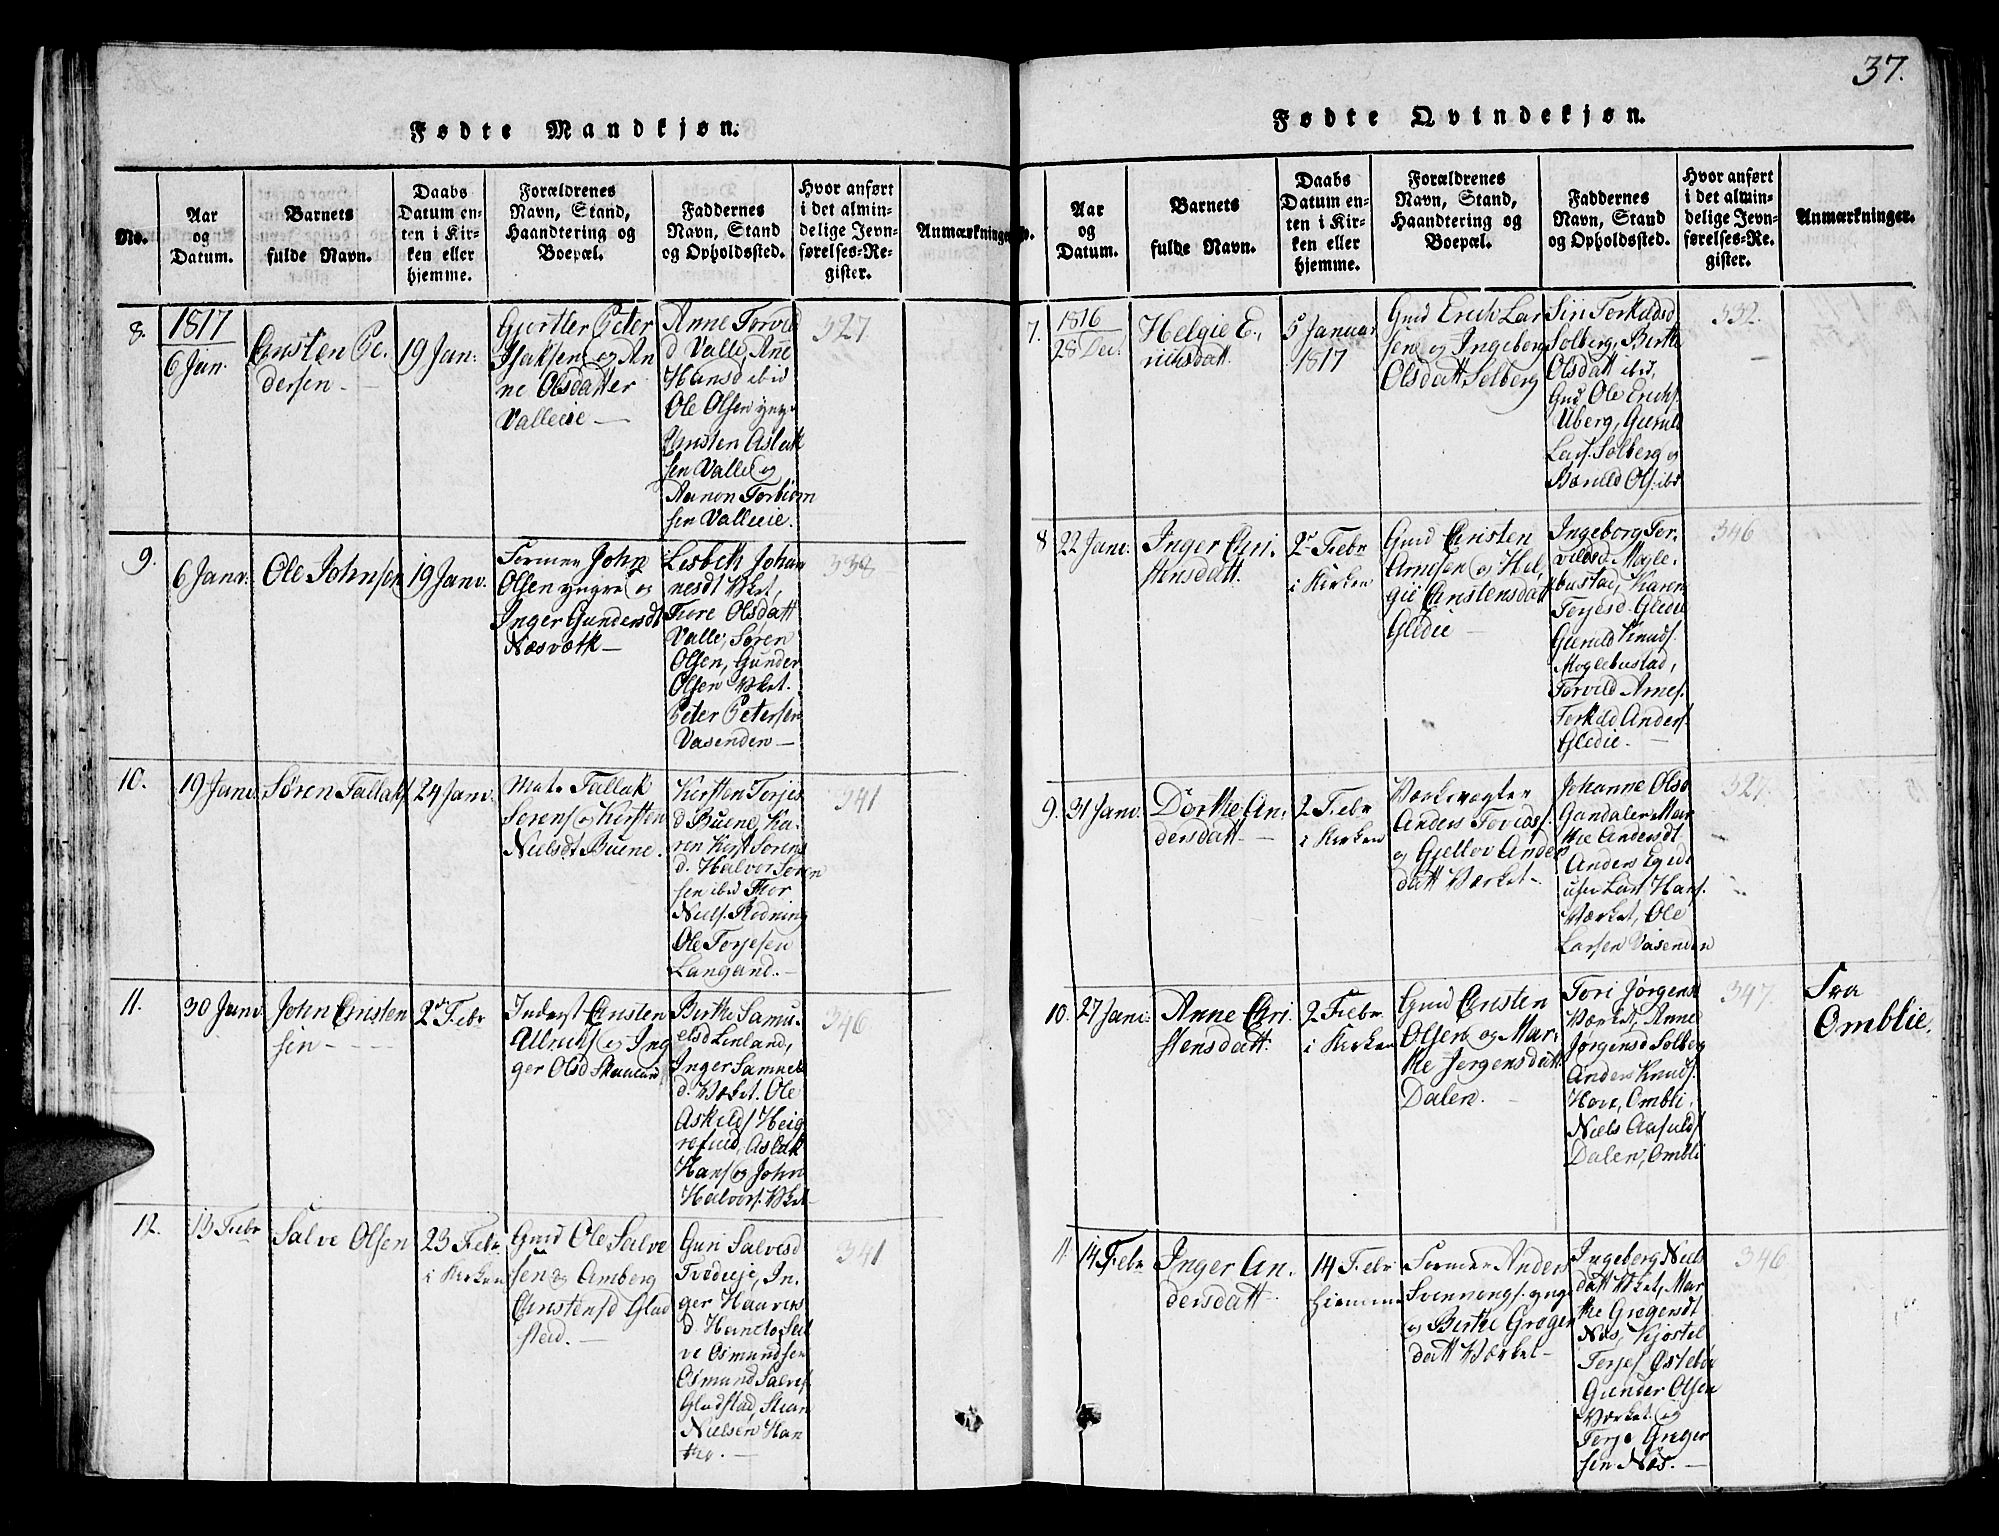 37.
Fødte Mandkjøn.
No.
Aar
og
Datum.
Barnets
fulde Navn.
Daabs
Datum en-
ten i Kir-
ken eller
hjemme.
Forældrenes
Navn, Stand,
Haandtering og
Boepæl.
Faddernes
Navn, Stand
og Opholdssted.
Hvor anført
i det almin-
delige Jevn-
førelses-Re-
gister.
Anmærkninger
8.
1817
6 Jan.
Cristen Pe-
dersen
19 Jan:
Giertler Peter
Isaksen og An
ne Olsdatter
Valleie
Anne Torvild
d Valle, Anne
Hansd ibid
Ole Olsen yngr
Cristen Aslak
sen Valle og
Aanon Torbiørn
sen Valleie.
327
9.
6 Janv:
Ole Johnsen
19 Janv.
Former John
Olsen yngre og
Inger Gundersdt
Næsvætk
Lisbeth Johan
nesdt Vket,
Tore Olsdatt
Valle, Søren
Olsen, Gunder
Olsen Vket.
Peter Petersen
Vasenden
338
10.
19 Janv
Søren Tallaks.
24 Janv.
Mats Tallak
Sørens. og Kirsten
Nielsdt Buene.
Kirsten Torjes
d Buene, Ka-
ren Kirst. Sørens
d. Halvor Søren
sen ibid Thor
Niels. Rødning
Ole Torjesen
Langand.
341
11.
30 Janv
John Cristen
sen
2d Febr
Inderst Cristen
Ulrichs. og Ing
ger Olsd Skaaland
Birthe Samu-
elsd Linland,
Inger Samuels
d. Vket. Ole
Askilds. Heig
refield, Aslak
Hans. og John
Halvors. Vket
346
12.
13 Febr
Salve Olsen
23 Febr.
i Kirken
Gmd Ole Salve
sen og Amberg
Christensd Glad
stad.
Guri Salvesd
Tvedeie, In-
ger Haavors
d. Hanto, Sal
ve Osmundsen
Osmund Salves.
Gladstad Stian
Nielsen Han
tho.
341
Fødte Qvindekjøn.
Aar
og
Datum.
Barnets
fulde Navn.
Daabs
Datum en-
ten i Kir-
ken eller
hjemme.
Forældrenes
Navn, Stand,
Haandtering og
Boepæl.
Faddernes
Navn, Stand
og Opholdssted.
Hvor anført
i det almin-
delige Jevn-
førelses-Re-
gister.
Anmærkninger.
7.
1816
28 Dec.
Helgie E-
richsdatt.
5 Januar
1817
Gmd Erich Lar
sen og Ingeborg
Olsdatt Solberg
Siri Torkildsd
Solberg, Birthe
Olsdatt ibid,
Gmd Ole Erichs.
Uberg, Gierruld
Lars. Solberg og
Bæruld Ols. ibid
332.
8
22 Janv.
Inger Chri-
stensdatt.
2d Febr
i Kirken
Gmd Cristen
Arnesen og Hel-
gie Christensdatt
Gledie
Ingeborg Tor-
vildsd. Mogle-
bustad, Karen
Terjesd. Gledie
Gieruld Knuds.
Moglebustad,
Torvild Arnes.
Torkild Anders.
Gledie.
346
9.
31 Janv.
Dorthe An-
dersdatt.
2 Febr
i Kirken
Værksvogter
Anders Tovias.
og Gjellov Ander
datt Værket
Johanne Olsd
Gandalen, Mar
the Andersdt
Anders Egidi
usen Lars Hans.
Værket, Ole
Larsen Vasenden
327.
10.
27 Janv:
Anne Chri-
stensdatt.
2 Febr.
i Kirken
Gmd Cristen
Olsen og Mar-
the Jørgensdatt
Dalen.
Tori Jørgensd
Værket, Anne
Jørgensd Solberg
Anders Knuds.
Hove, Ombli.
Niels Aasulds.
Dalen, Ombli
347.
Fra
Omblie.
11.
14 Febr
Inger An-
dersdatt.
14 Febr
Hiemme
Former Anders
Svennungs. yngr
og Birthe Greger
datt Værket
Ingeborg Niels
datt Vket, Mar-
the Gregersdt
Næs, Kjøstel
Terjes. Østebøe
Gunder Olsen
Værket og
Terje Greger
sen Næs.
346